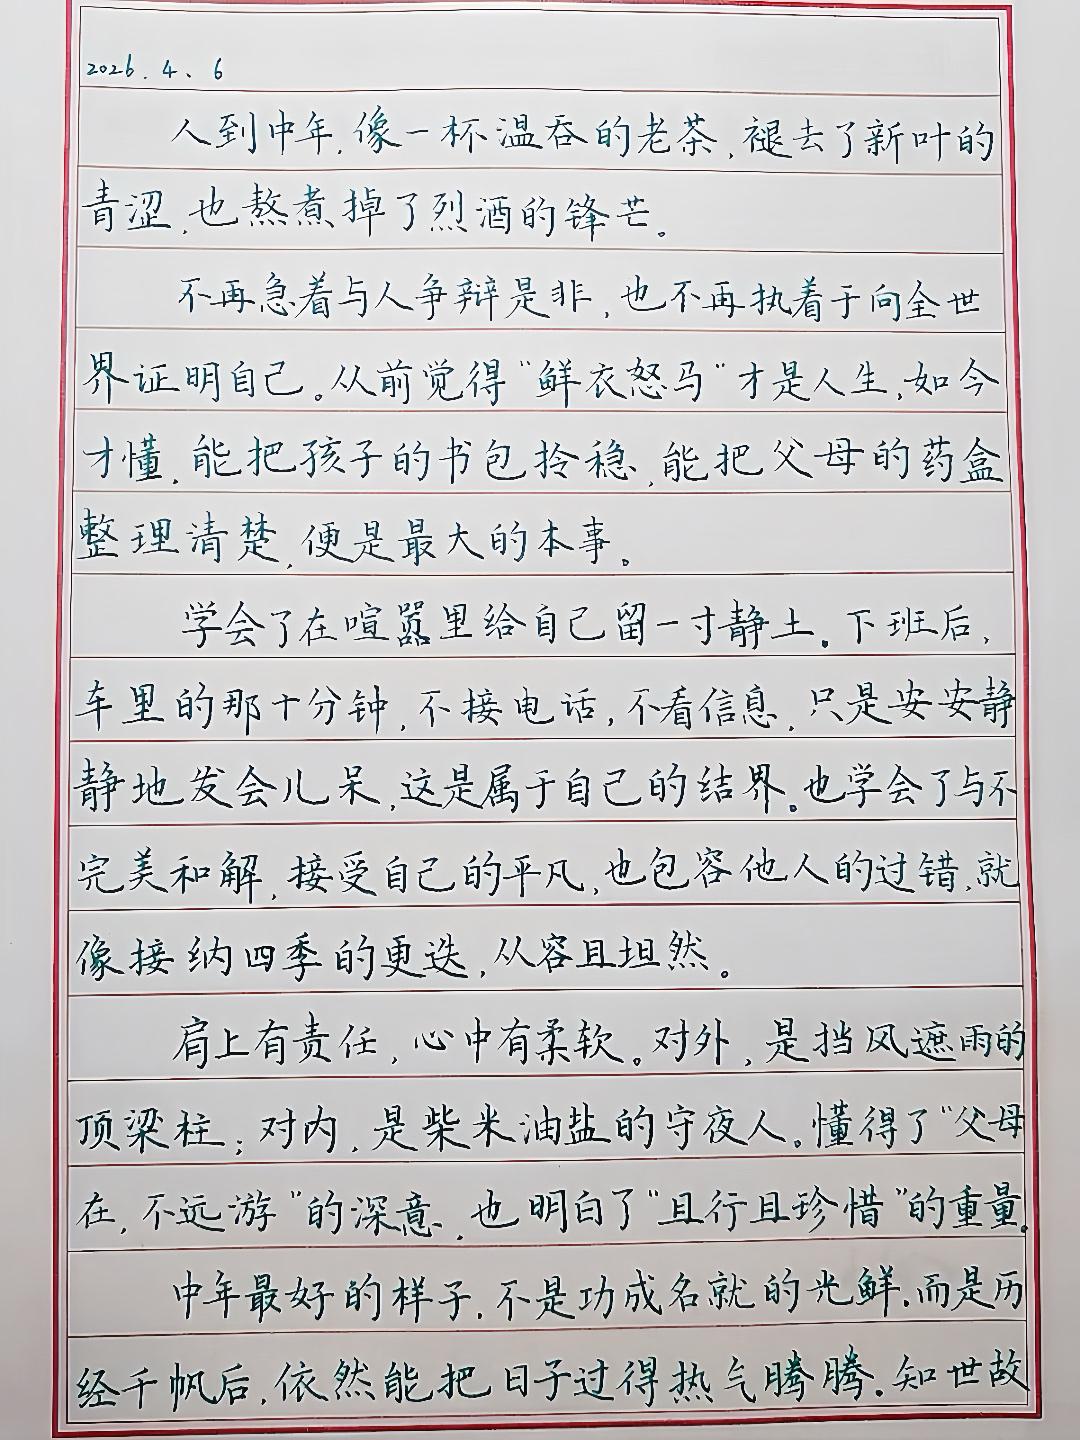 2026.4、6
人到中年,像一杯温吞的老茶,褪去了新叶的
青涩,也熬煮掉了烈酒的锋芒。
不再急着与人争辩是非,也不再执着于向全世
界证明自己。从前觉得“鲜衣怒马”才是人生,如今
才懂,能把孩子的书包拎稳,能把父母的药盒
整理清楚,便是最大的本事。
学会了在喧嚣里给自己留一寸静土。下班后,
车里的那十分钟,不接电话,不看信息,只是安安静
静地发会儿呆,这是属于自己的结界。也学会了与不
完美和解,接受自己的平凡,也包容他人的过错,就
像接纳四季的更迭,从容且坦然。
肩上有责任,心中有柔软。对外,是挡风遮雨的
顶梁柱;对内,是柴米油盐的守夜人。懂得了“父母
在,不远游”的深意,也明白了“且行且珍惜”的重量。
中年最好的样子,不是功成名就的光鲜,而是历
经千帆后,依然能把日子过得热气腾腾。知世故